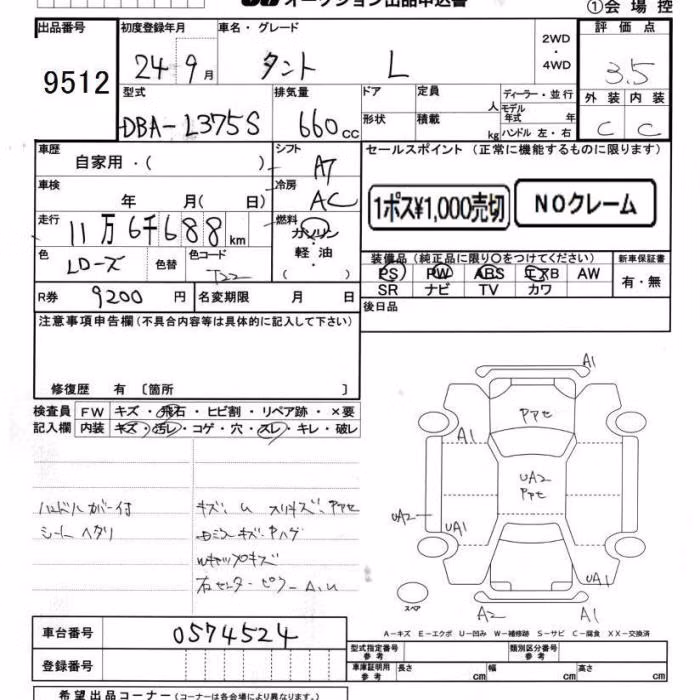 オークション出品申込書
①会場控
出品番号
9512
初度登録年月
24 9月
車名・グレード
タント L
2WD
・
4WD
評価点
3.5
外装 内装
C C
型式
DBA-L375S
排気量
660cc
ドア
形状
定員
人
積載
kg
ディーラー・並行
モデル
年式 年
ハンドル 左・右
車歴
自家用・( )
シフト
A7
車検
年 月( 日)
冷房
AC
走行
11万6千688km
燃料
ガソリン
軽油
( )
色
LD-ズ
色替
色コード
T22
R券
9200円
名変期限 月 日
セールスポイント (正常に機能するものに限ります)
1ポス¥1,000売切
NOクレーム
装備品(純正品に限り〇をつけてください)
PS PW ABS エアB AW
SR ナビ TV カワ
新車保証書
有・無
後日品
注意事項申告欄(不具合内容等は具体的に記入して下さい)
修復歴 有〔箇所 〕
検査員 FW キズ・飛石・ヒビ割・リペア跡・×要
記入欄 内装 キズ・汚レ・コゲ・穴・スレ・キレ・破レ
ハンドルカバー付
シートヘタリ
キズ、U スリキズ、ヤケ
右センターピラーA,U
A1
A1
UA2
UA2
UA1
UA1
A2
A1
スペア
A-キズ E-エクボ U-凹み W-補修跡 S-サビ C-腐食 XX-交換済
車台番号
0574524
登録番号
型式指定番号
参考
類別区分番号
参考
車庫証明用
参考
長さ cm
幅 cm
高さ cm
希望出品コーナー(コーナーは各会場により異なります。)